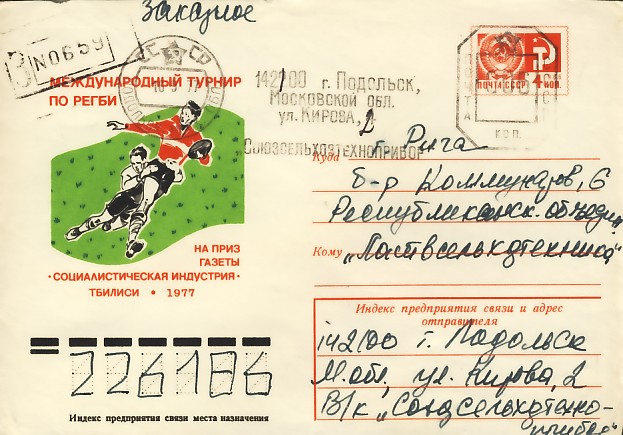 Заказное
№0659
МЕЖДУНАРОДНЫЙ ТУРНИР
ПО РЕГБИ
НА ПРИЗ
ГАЗЕТЫ
•СОЦИАЛИСТИЧЕСКАЯ ИНДУСТРИЯ•
ТБИЛИСИ • 1977
СССР
142100 г. Подольск,
Московской обл.
ул. Кирова, 2
Союзсельхозтехноприбор
ПОЧТА СССР
4 КОП.
КОП.
Куда
г. Рига
б-р Коммунаров, 6
Республиканск. объедин
Кому
„Латвсельхозтехника"
Индекс предприятия связи и адрес
отправителя
142100 г. Подольск
М.обл, ул. Кирова, 2
В/к „Союзсельхозтехно-
прибор"
226186
Индекс предприятия связи места назначения